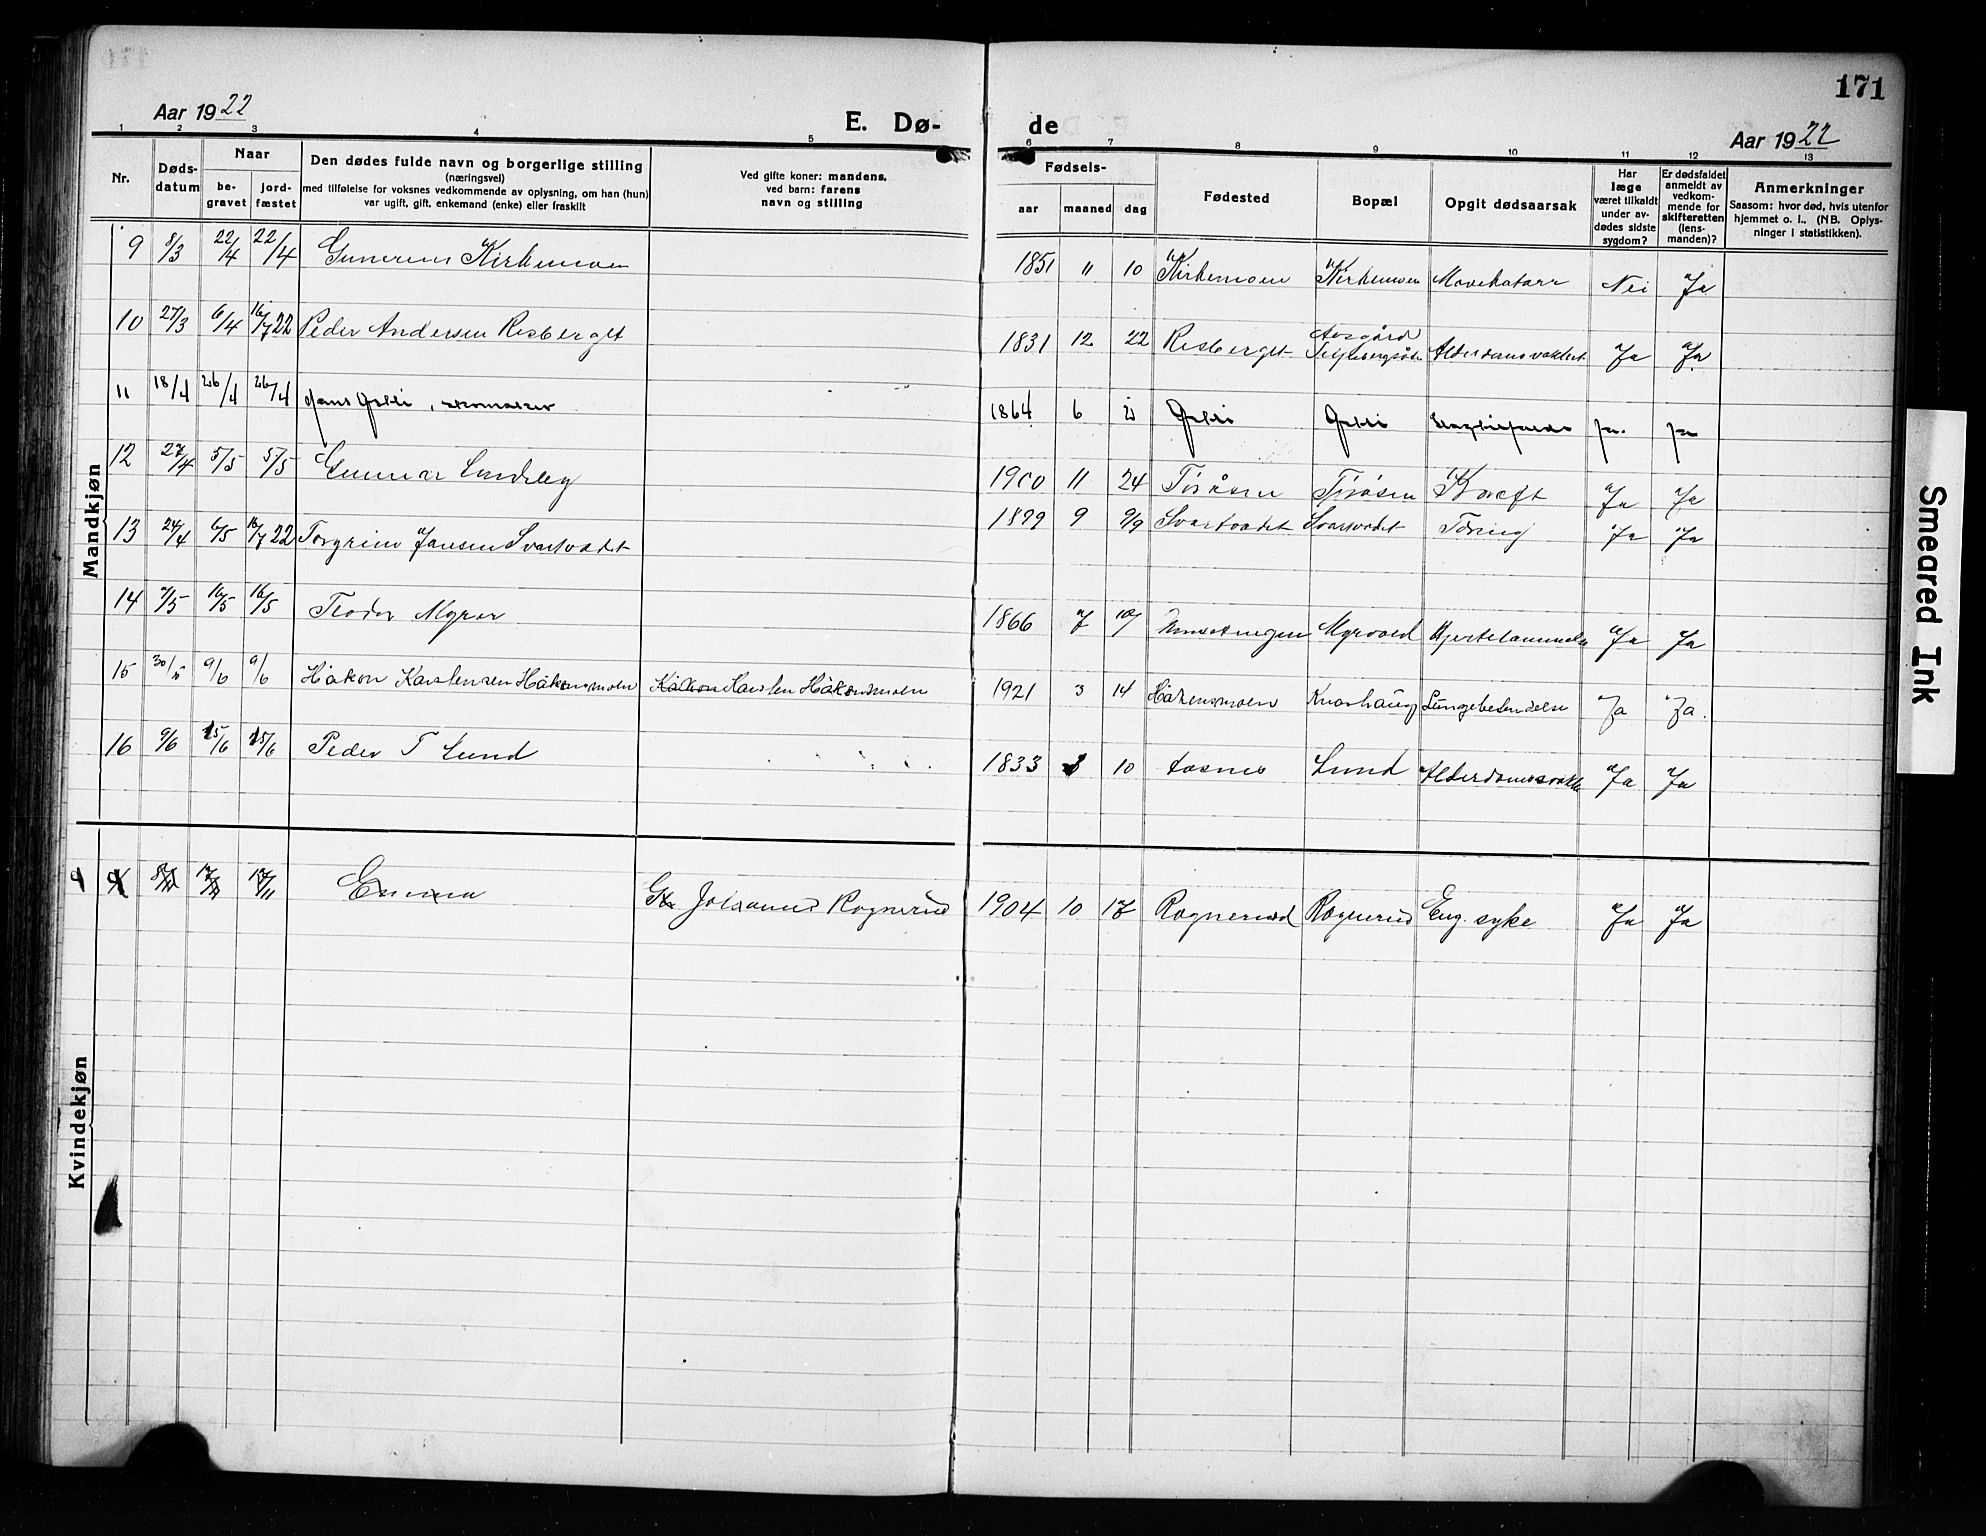 171
Aar 1922
E. Dø-
de
Aar 1922
1 2 3 4 5 6 7 8 9 10 11 12 13
Nr.
Døds-
datum
Naar
be-
gravet
jord-
fæstet
Den dødes fulde navn og borgerlige stilling
(næringsvei)
med tilføielse for voksnes vedkommende av oplysning, om han (hun)
var ugift, gift, enkemand (enke) eller fraskilt
Ved gifte koner: mandens,
ved barn: farens
navn og stilling
Fødsels-
aar
maaned
dag
Fødested
Bopæl
Opgit dødsaarsak
Har
læge
været tilkaldt
under av-
dødes sidste
sygdom?
Er dødsfaldet
anmeldt av
vedkom-
mende for
skifteretten
(lens-
manden)?
Anmerkninger
Saasom: hvor død, hvis utenfor
hjemmet o. l., (NB. Oplys-
ninger i statistikken).
Mandkjøn
9 8/3 22/4 22/4 Gunerius Kirkemoen 1851 11 10 Kirkemoen Kirkemoen Mavekatarr Nei Ja
10 27/3 6/4 16/7 22 Peder Andersen Risberget 1831 12 22 Risberget Ja Ja
11 18/4 26/4 26/4 Hans , skomaker 1864 6 Ja Ja
12 27/4 5/5 5/5 Gunnar Lindsby 1900 11 24 Tøråsen Tøråsen Kræft Ja Ja
13 24/4 6/5 16/7 22 Torgrim Jansen Svartvadet 1899 9 9/9 Svartvadet Svartvadet Tæring Ja Ja
14 7/5 16/5 16/5 Teodor 1866 7 Myrvold Hjertelammelse Ja Ja
15 30/5 9/6 9/6 Håkon Karstensen Håkensmoen Håkon Karsten Håkensmoen 1921 3 14 Håkensmoen Knashaug Lungebetendelse Ja Ja.
16 9/6 15/6 15/6 Peder T Lund 1833 3 10 Aasnes Lund Alderdomssvakke Ja Ja
Kvindekjøn
9 Emma Johannes Rognerud 1904 10 17 Rognerud Rognerud Eng. syke Ja Ja
Smeared Ink